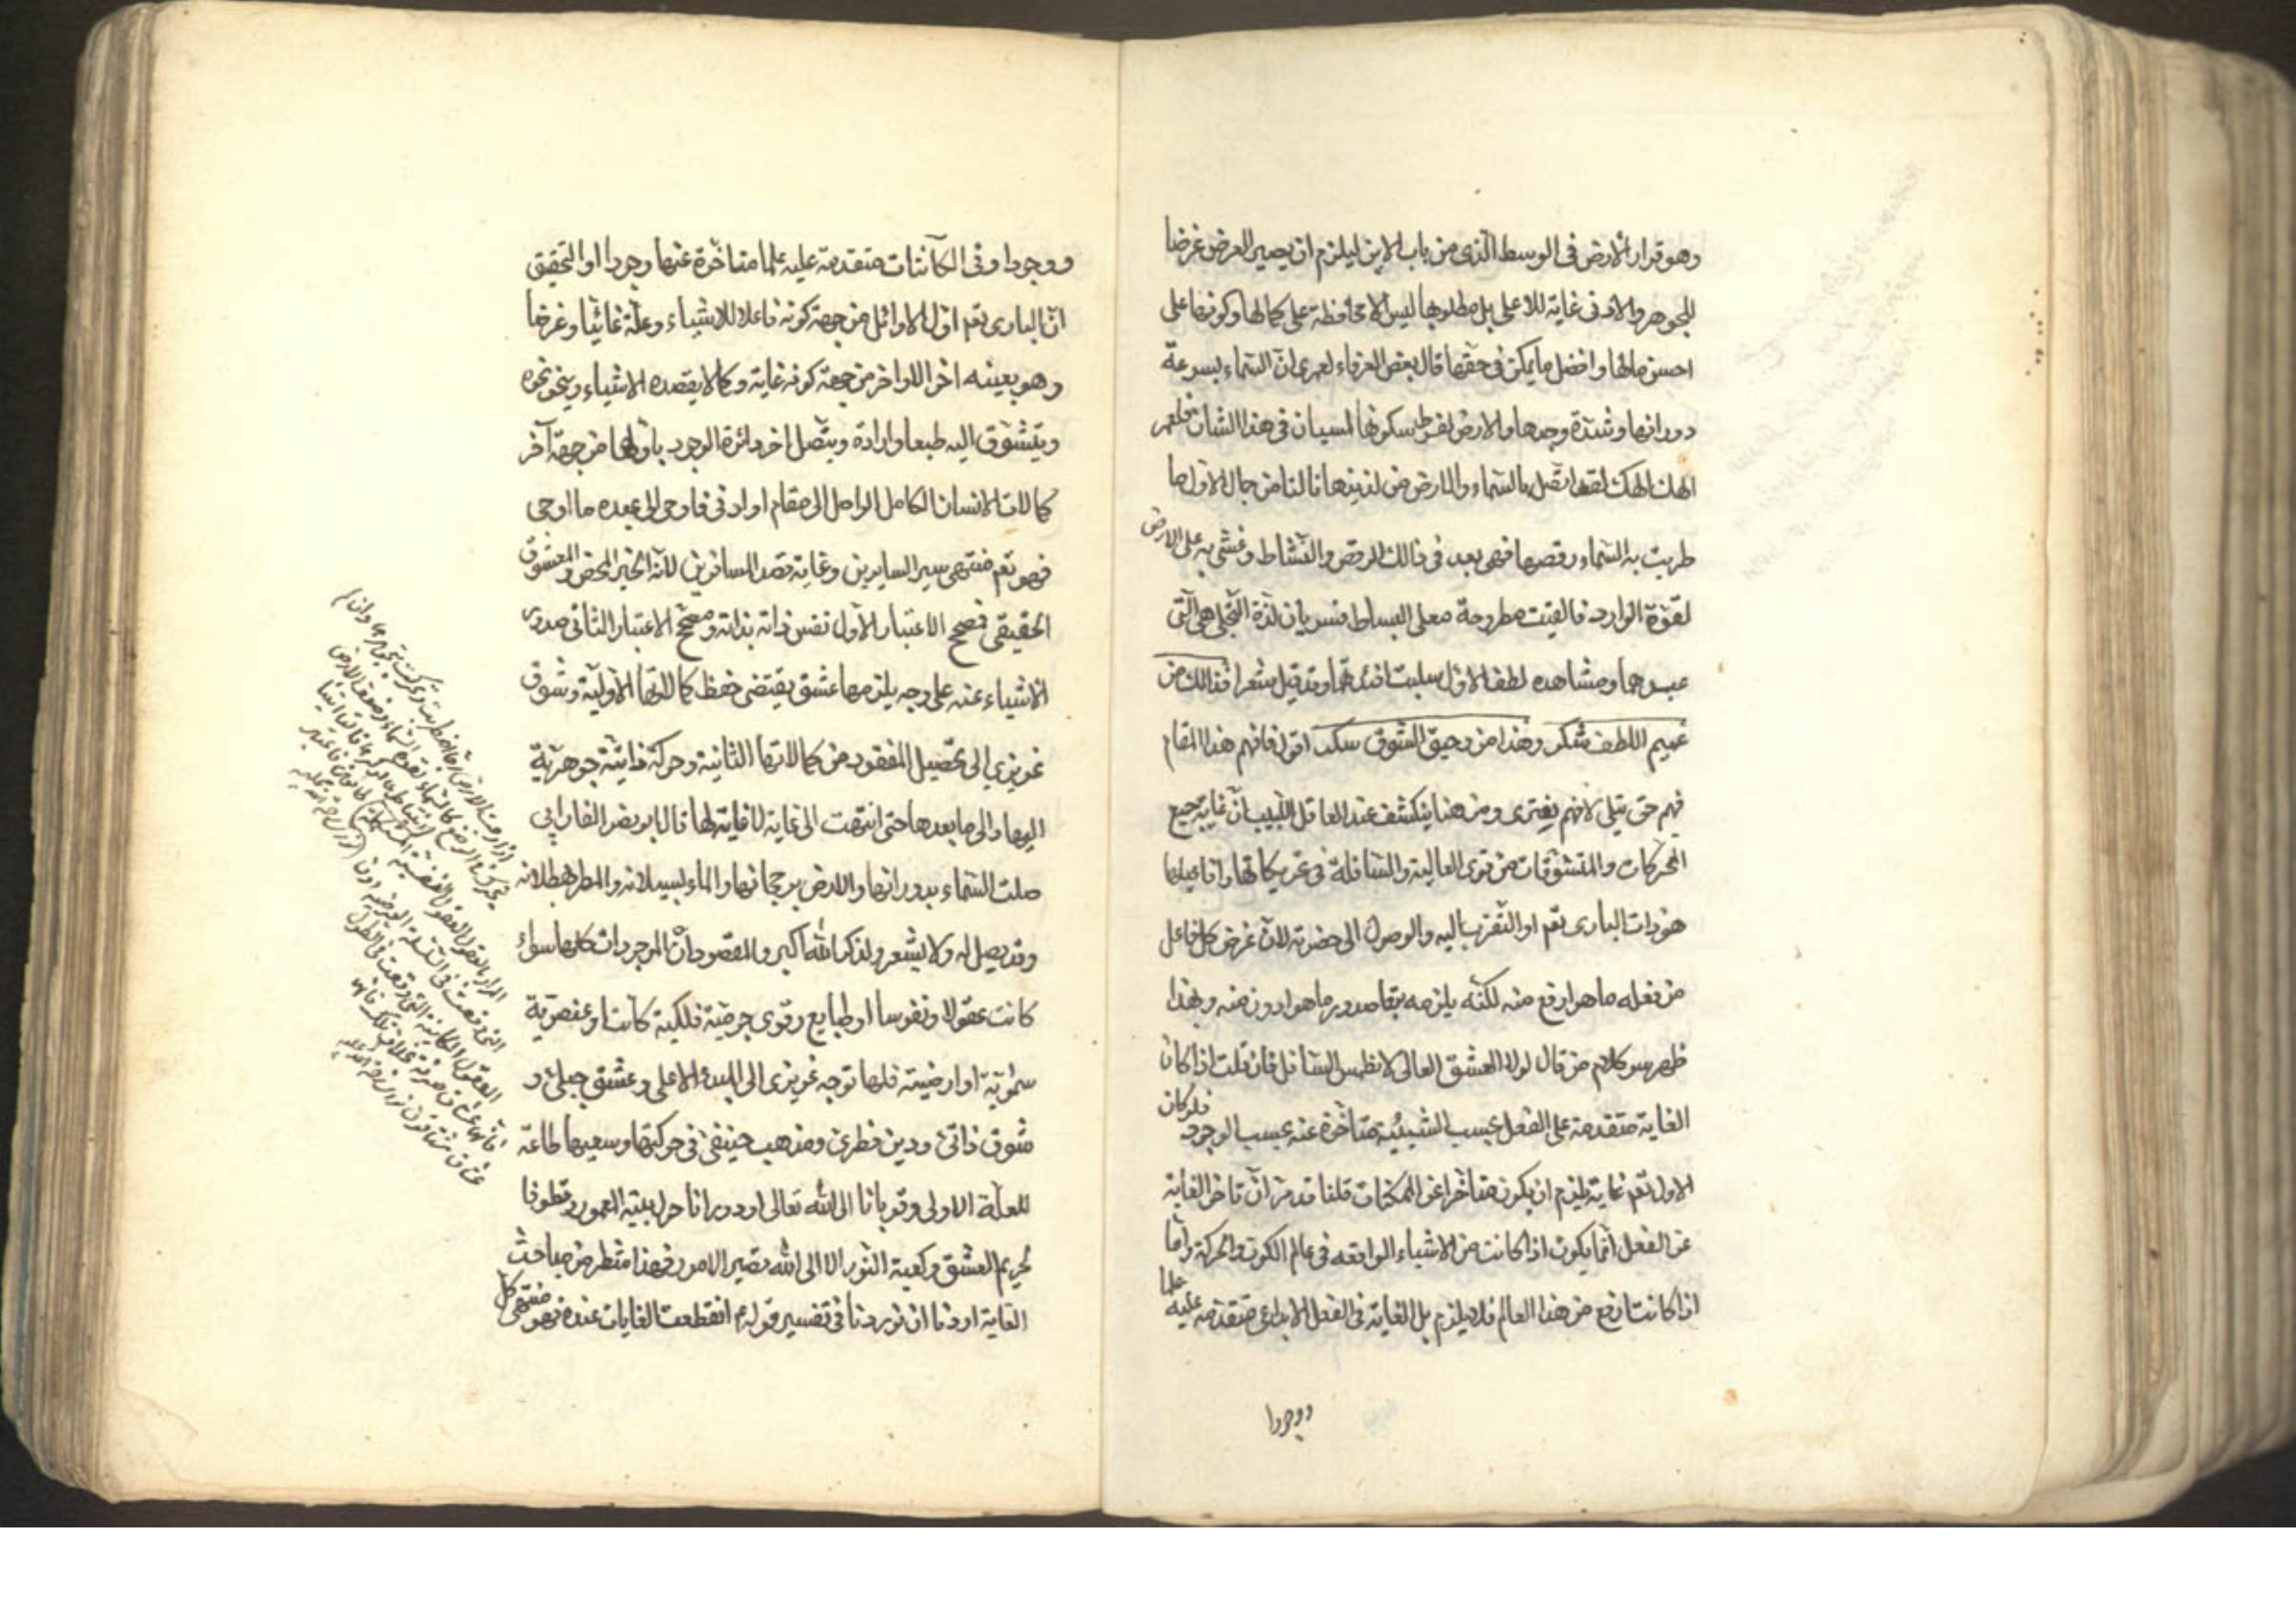 وهو قرار الارض فى الوسط الذى من باب الاين ليلزم ان يصير العرض غرضا
للجوهر والادنى غاية للاعلى بل مطلوبها ليس الا محافظة على كمالها وكونها على
احسن مالها وافضل ما يمكن فى حقها قال بعض العرفاء لعمرى ان السماء بسرعة
دورانها وشدة وجدها والارض بفرط سكونها لسيان فى هذا الشان فلعمر
الهك الهك لقد اتصل بالسماء والارض من لذيذ ما نالتا من جمال الاول ما
طربت به السماء رقصها فهى بعد فى ذالك الرقص والنشاط وغشى به على الارض
لقوة الوارد فالقيت مطروحة على البساط فسريان لذة التجلى هى التى
عبدهما ومشاهده لطف الاول سلبت افئدتهما وقد قيل شعرا فذالك من
عميم اللطف شكر وهذا من رحيق الشوق سكر اقول فافهم هذا المقام
فهم حق يتلى لا فهم يفترى ومن هنا ينكشف عند العاقل اللبيب ان غاية جميع
المحركات والمتشوقات من قوى العالية والسافلة فى تحريكاتها وافاعيلها
هو ذات البارى تعم او التقرب اليه والوصول الى حضرته لان غرض كل فاعل
من فعله ما هو ارفع منه لكنه يلزمه بتعا صدور ما هو ادون منه وبهذا
ظهر سر كلام من قال لولا العشق العالى لانطمس السافل فان قلت اذا كان
الغاية متقدمة على الفعل بحسب الشيئية متاخرة عنه بحسب الوجود فلو كان
الاول تعم غاية يلزم ان يكون متاخرا عن الممكنات قلنا قد مر ان تاخر الغاية
عن الفعل انما يكون اذا كانت من الاشياء الواقعه فى عالم الكون والحركة واما
اذا كانت ارفع من هذا العالم فلا يلزم بل الغاية فى الفعل الابداعى متقدمه عليه علما
ووجودا
ووجودا وفى الكائنات متقدمة عليه علما متاخرة عنها وجودا او التحقيق
ان البارى تعم اول الاوائل من جهة كونه فاعلا للاشياء وعلة غائيا وغرضا
وهو بعينه اخر الاواخر من جهة كونه غاية وكمالا يقصده الاشياء وينحو نحوه
ويتشوق اليه طبعا وارادة ويتصل اخر دائرة الوجود باولها من جهة آخر
كمالات الانسان الكامل الواصل الى مقام او ادنى فاوحى الى عبده ما اوحى
فهو تعم منتهى سير السايرين وغاية قصد المسافرين لانه الخير المحض والمعشوق
الحقيقى فمصحح الاعتبار الاول نفس ذاته بذاته ومصحح الاعتبار الثانى صدور
الاشياء عنه على وجه يلزمها عشق يقتضى حفظ كمالاتها الاولية وشوق
غريزي الى تحصيل المفقود من كمالاتها الثانية وحركة ذاتية جوهرية
اليها والى ما بعدها حتى انتهت الى غاية لا غاية لها قال ابو نصر الفارابى
صلت السماء بدورانها والارض برجحانها والماء بسيلانه والمطر بهطلانه
وقد يصلى له ولا يشعر ولذكر الله اكبر والمقصود ان الموجودات كلها سواء
كانت عقولا ونفوسا او طبايع وقوى جرمية فلكية كانت او عنصرية
سماوية او ارضية فلها توجه غريزى الى المبدء الاعلى وعشق جبلى و
شوق ذاتى ودين فطرى ومذهب حنيفى فى حركتها وسعيها طاعة
للعلة الاولى وقربانا الى الله تعالى او دورانا حول بيته المعمور وطوفا
لحريم العشق وكعبة النور الا الى الله تصير الامور فهذا شطر من مباحث
الغاية اردنا ان نوردنا فى تفسير قوله ع انقطعت الغايات عنده فهو منتهى كل